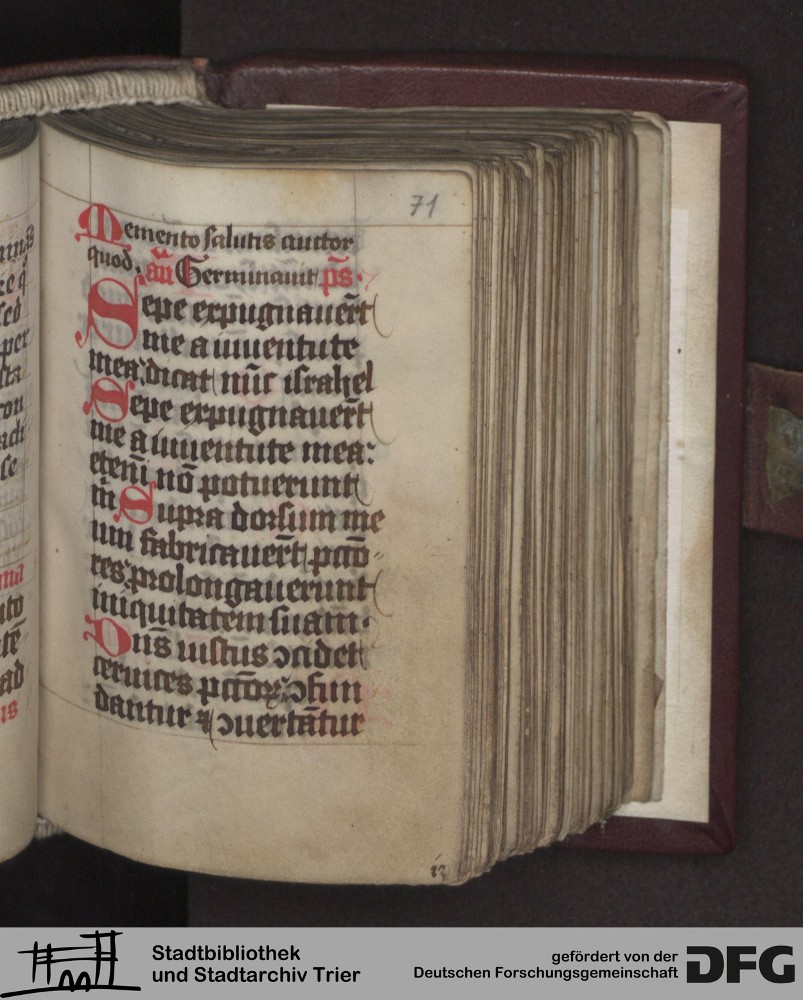 71
Memento salutis auctor
quod. an̄ Germinauit p̄s.
Sepe expugnauer̄t
me a iuuentute
mea: dicat nūc israhel
Sepe expugnauer̄t
me a iuuentute mea:
eteni̅ nō potuerunt
m̄ Supra dorsum me
um fabricauer̄t pctō-
res: prolongauerunt
iniquitatem suam.
Dn̄s iustus ↄcidet
ceruices pctōꝝ: ↄfun
dantur ⁊ ↄuertātur
Stadtbibliothek
und Stadtarchiv Trier
gefördert von der
Deutschen Forschungsgemeinschaft
DFG